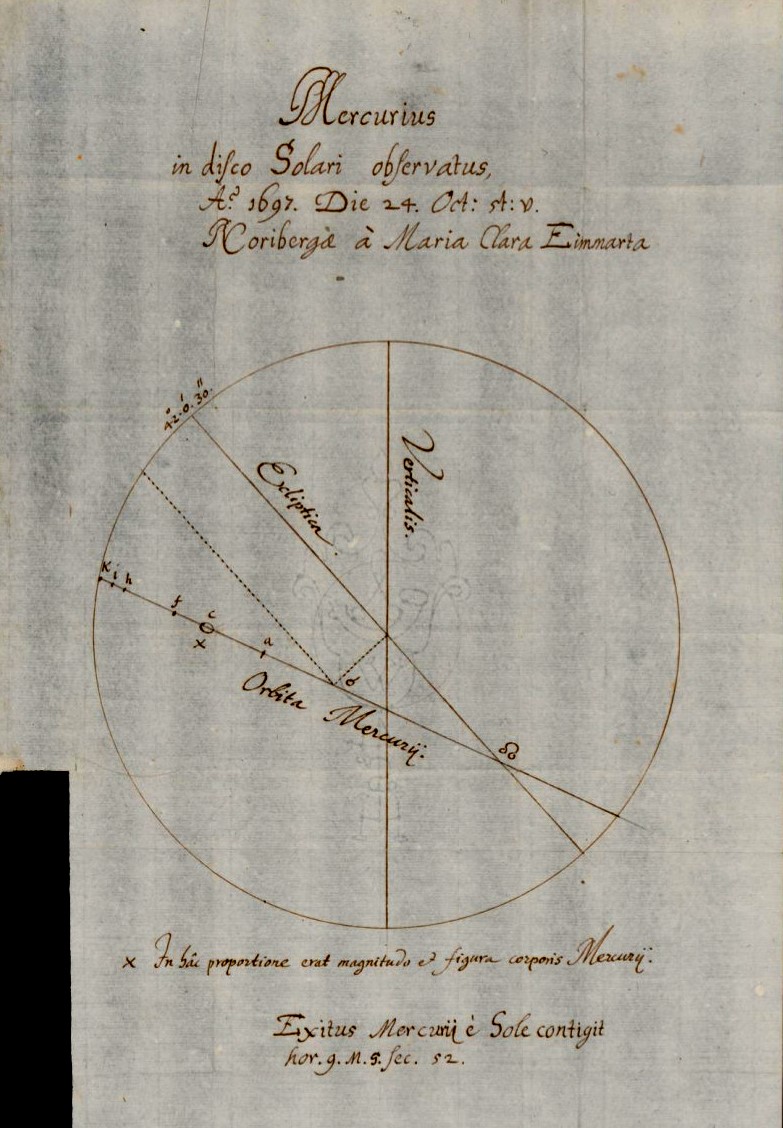 Mercurius
in disco Solari observatus,
Aº 1697. Die 24. Oct: st: v.
Noribergæ à Maria Clara Eimmarta
42.° 0.' 30."
Ecliptica.
Verticalis.
K i h
f
c
x
a
b
Orbita Mercurij.
☊
x In hâc proportione erat magnitudo et figura corporis Mercurij.
Exitus Mercurij è Sole contigit
hor. 9. M. 5. sec. 52.